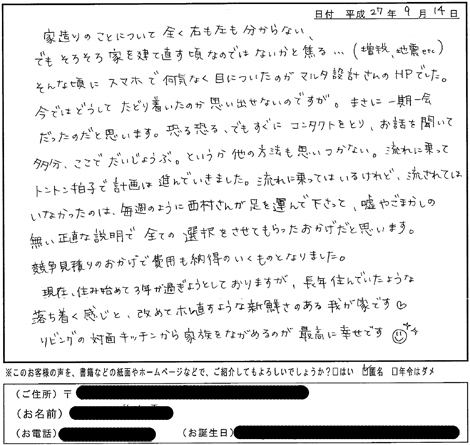 日付 平成27年9月14日
家造りのことについて全く右も左も分からない、
でもそろそろ家を建て直す頃なのではないかと焦る…(増税、地震etc)
そんな頃にスマホで何気なく目についたのがマルタ設計さんのHPでした。
今ではどうしてたどり着いたのか思い出せないのですが。まさに一期一会
だったのだと思います。恐る恐る、でもすぐにコンタクトをとり、お話を聞いて
多分、ここでだいじょうぶ。というか他の方法も思いつかない。流れに乗って
トントン拍子で計画は進んでいきました。流れに乗ってはいるけれど、流されては
いなかったのは、毎週のように西村さんが足を運んで下さって、嘘やごまかしの
無い正直な説明で全ての選択をさせてもらったおかげだと思います。
競争見積りのおかげで費用も納得のいくものとなりました。
現在、住み始めて3年が過ぎようとしておりますが、長年住んでいたような
落ち着く感じと、改めてホレ直すような新鮮さのある我が家です♡
リビングの対面キッチンから家族をながめるのが最高に幸せです
※このお客様の声を、書籍などの紙面やホームページなどで、ご紹介してもよろしいでしょうか？□はい ☑匿名 □年令はダメ
(ご住所) 〒
(お名前)
(お電話) (お誕生日)